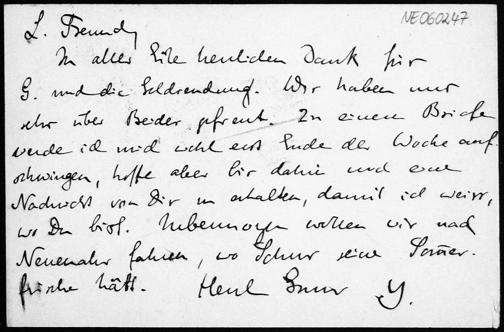 NE060247
L. Freund,
In aller Eile herzlichen Dank für
G. und die Geldsendung. Wir haben uns
sehr über Beides gefreut. Zu einem Briefe
werde ich mich wohl erst Ende der Woche auf-
schwingen, hoffe aber bis dahin und eine
Nachricht von Dir zu erhalten, damit ich weiss,
wo Du bist. Uebermorgen wollen wir nach
Neuenahr fahren, wo Schur seine Somer-
frische hält. Herzl. Gruss